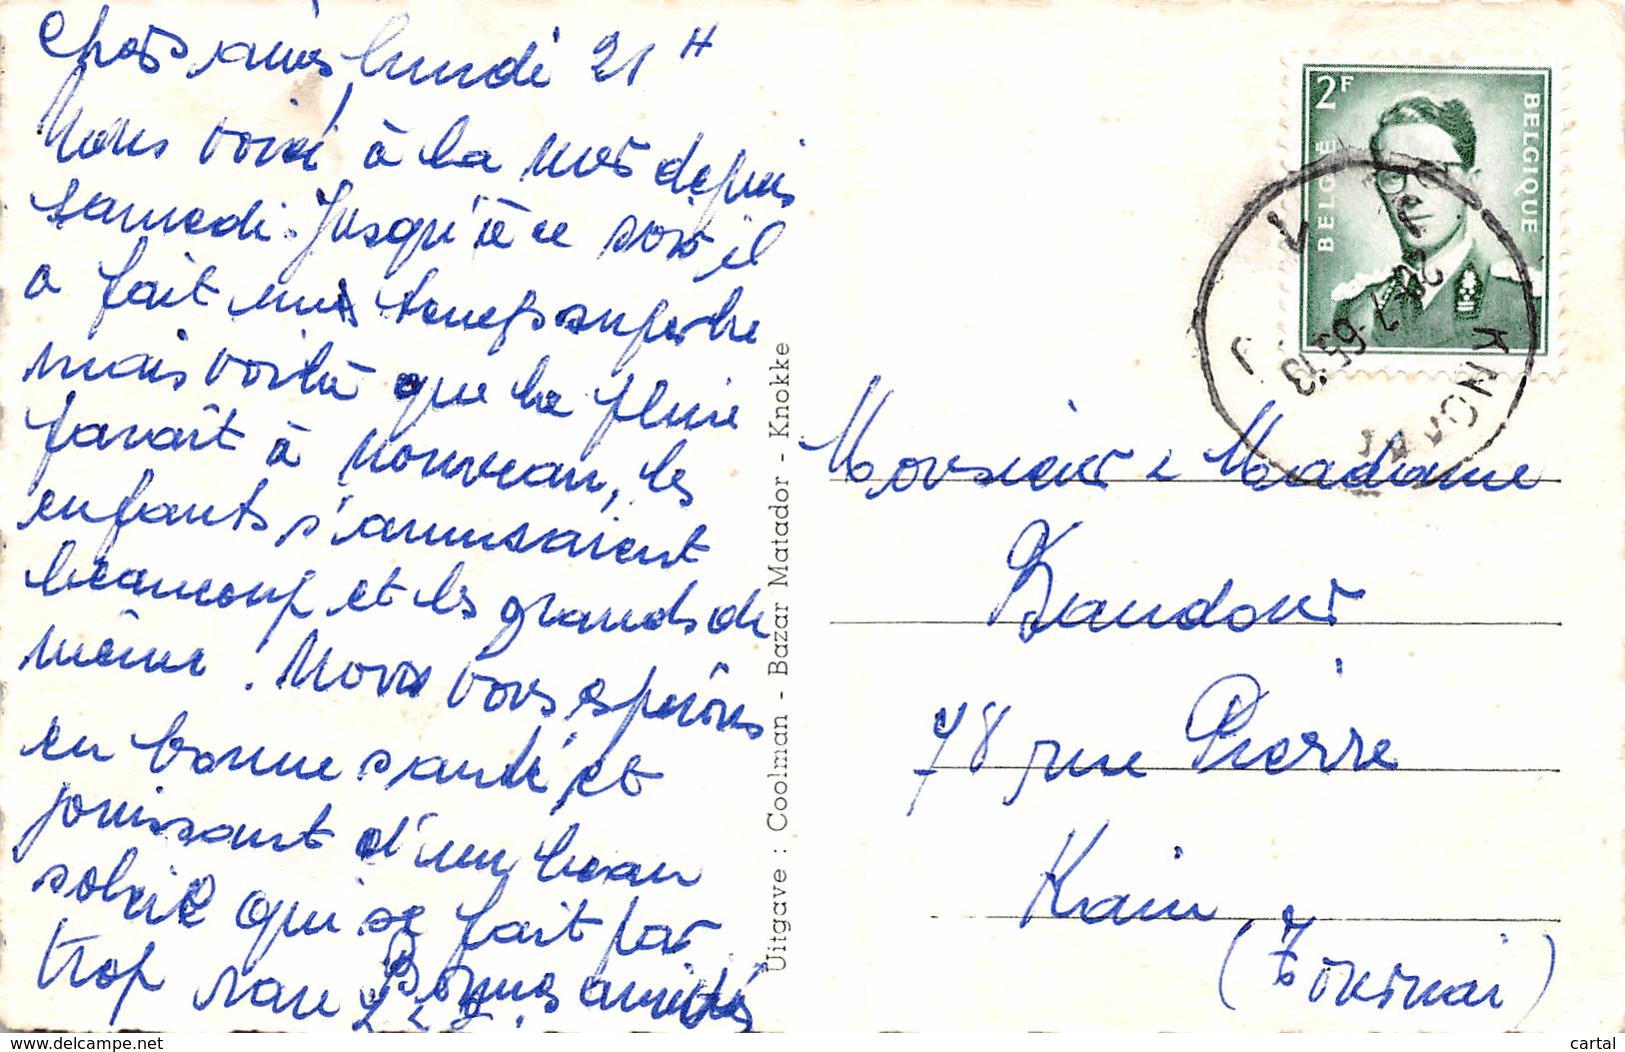 Chers amis, lundi 21 H
Nous voici à la mer depuis
samedi. Jusqu'à ce soir il
a fait un temps superbe
mais voilà que la pluie
paraît à nouveau, les
enfants s'amusaient
beaucoup et les grands de
même. Nous vous espérons
en bonne santé et
jouissant d'un beau
soleil qui se fait par
trop rare. Bonnes amitiés
Uitgave : Coolman - Bazar Matador - Knokke
2F
BELGIË
BELGIQUE
20-7-65 13
KNOKKE
Monsieur & Madame
Baudour
78 rue Pierre
Kain
(Tournai)
www.delcampe.net
cartal